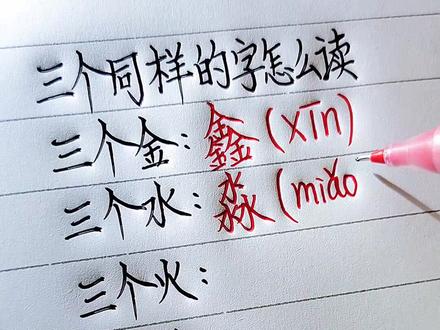 三个同样的字怎么读
三个金：鑫(xīn)
三个水：淼(miǎo
三个火：